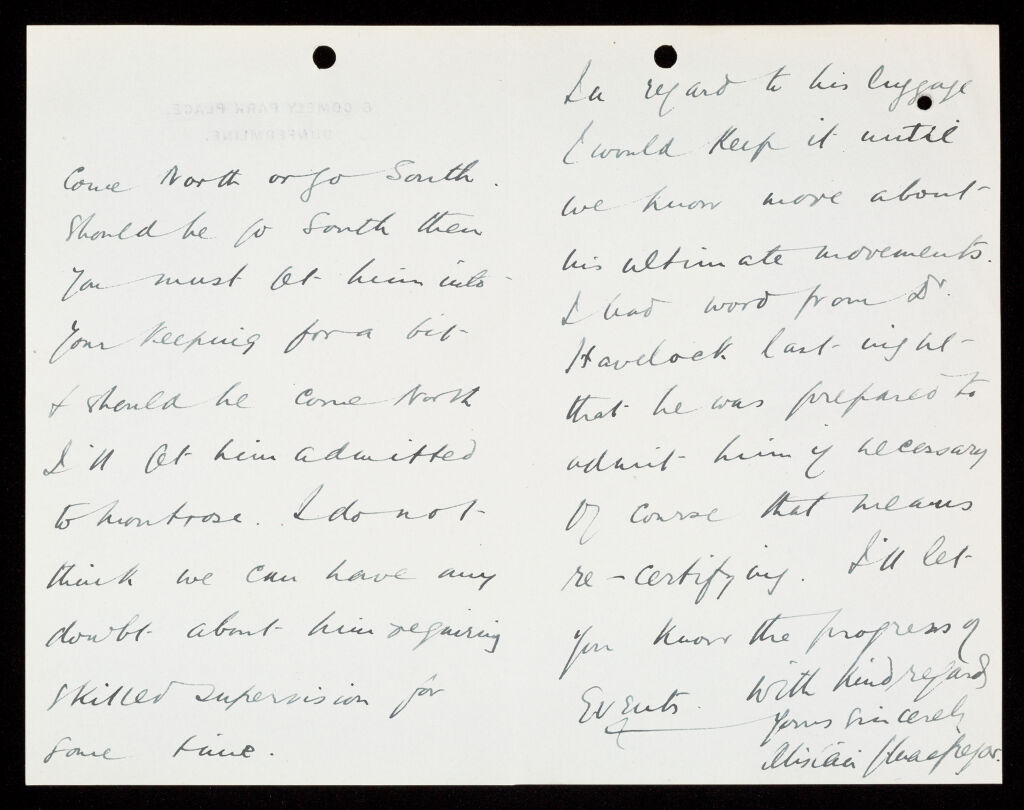 come North or go South.
Should he go South then
you must get him into
your keeping for a bit
& should he come North
I'll get him admitted
to Montrose. I do not
think we can have any
doubt about him requiring
skilled supervision for
some time.
In regard to his luggage
I would keep it until
we know more about
his ultimate movements.
I had word from Dr.
Havelock last night
that he was prepared to
admit him if necessary
Of course that means
re-certifying. I'll let
you know the progress of
Events. With kind regards
Yours sincerely
Alistair
6 COMELY PARK PLACE,
DUNFERMLINE.